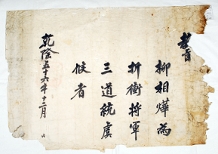 教旨
柳相燁為
折衝將軍
三道統虞
候者
乾隆五十六年十二月